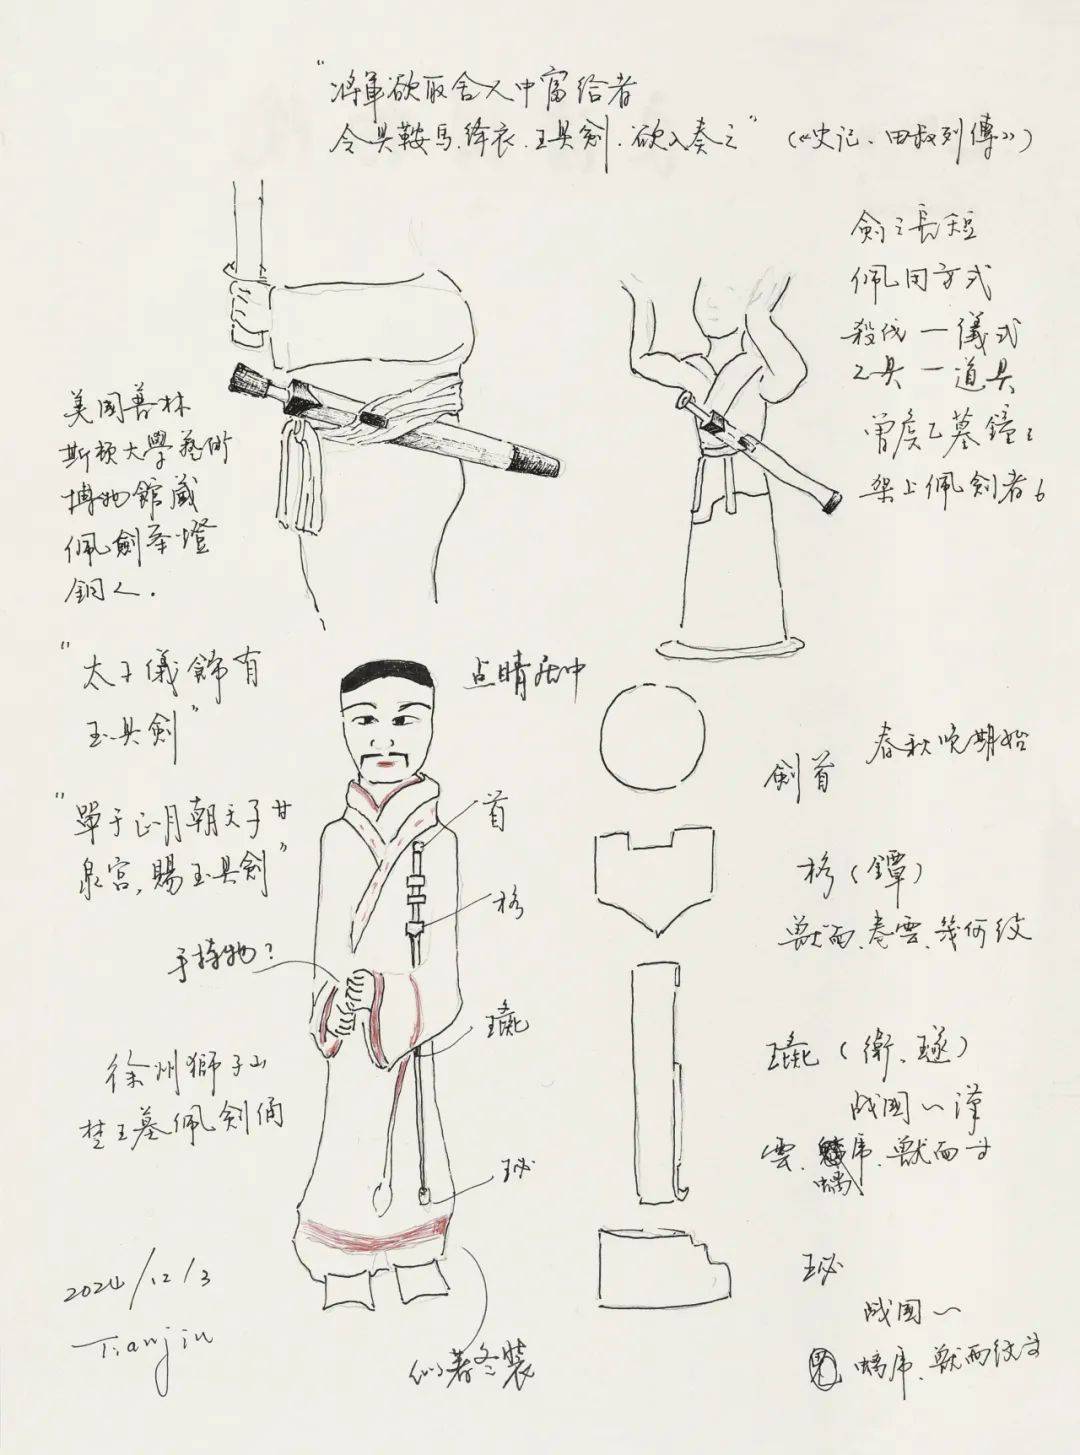 "将軍欲取舍人中富给者
令具鞍馬、绛衣、玉具劍、欲入奏之"(《史记、田叔列傳》)
劍之長短
佩用方式
殺伐一儀式
工具一道具
曾侯乙墓鐘之
架上佩劍者
美国普林
斯顿大學藝術
博物館藏
佩劍举燈
銅人.
"太子儀飾有
玉具劍"
点睛居中
"單于正月朝天子甘
泉宫,賜玉具劍"
首
格
手持物?
璏
珌
徐州獅子山
楚王墓佩劍俑
劍首
春秋晚期始
格(鐔)
獸面、卷雲、幾何纹
璏(衛、璲)
战国~漢
雲、虎、獸面
螭
珌
战国~
螭虎、獸面纹
2024/12/3
Tianjin
似著冬裝